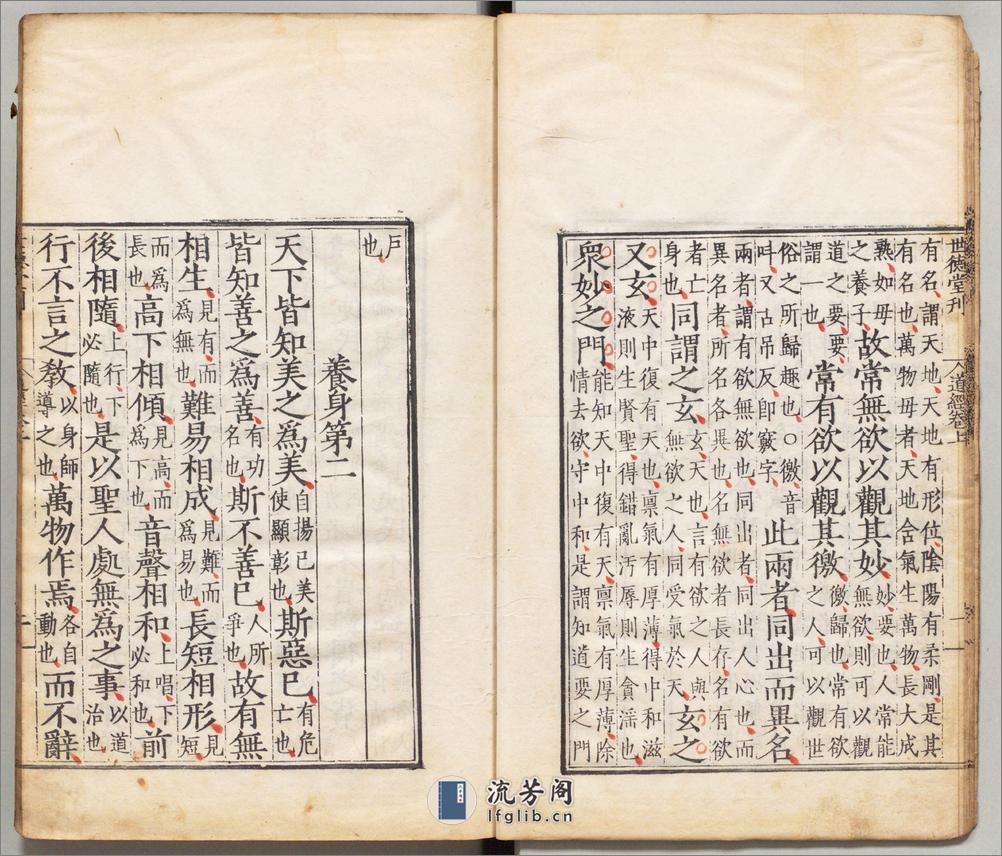 世德堂刊 道經卷上 一
有名謂天地天地有形位陰陽有柔剛是其
有名也萬物母者天地含氣生萬物長大成
熟如母之養子故常無欲以觀其妙妙要也人常能無欲則可以觀
道之要要謂一也常有欲以觀其徼徼歸也常有欲之人可以觀世
俗之所歸趣也○徼音叫又古吊反卽竅字此兩者同出而異名
兩者謂有欲無欲也同出者同出人心也而
異名者所名各異也名無欲者長存名有欲
者亡身也同謂之玄玄天也言有欲之人與無欲之人同受氣於天玄之
又玄天中復有天也禀氣有厚薄得中和滋液則生賢聖得錯亂汚辱則生貪淫也
衆妙之門能知天中復有天禀氣有厚薄除情去欲守中和是謂知道要之門
戶也
養身第二
天下皆知美之爲美自揚已美使顯彰也斯惡已有危亡也
皆知善之爲善有功名也斯不善已人所爭也故有無
相生見有而爲無也難易相成見難而爲易也長短相形見短
而爲長也高下相傾見高而爲下也音聲相和上唱下必和也前
後相隨上行下必隨也是以聖人處無爲之事以道治也
行不言之教以身師導之也萬物作焉各自動也而不辭
流芳阁
lfglib.cn